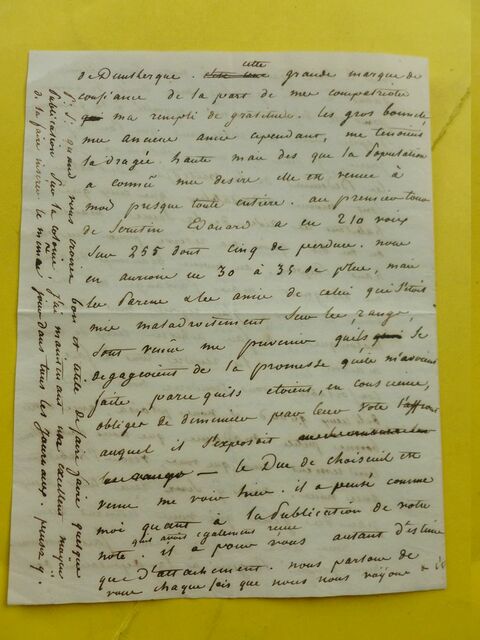 cette
de Dunkerque. grande marque de
confiance de la part de mes compatriotes
ma rempli de gratitude. les gros bonnets,
mes anciens amis cependant, me tenoient
la dragée haute mais des que la Population
a connû mes desirs elle est venue à
moi presque toute entiere. au premier tour
de Scrutin Edouard a eu 210 voix
Sur 255 dont cinq de perdues. nous
en aurions eu 30 à 35 de plus, mais
les Parens & les amis de celui qui S'étoit
mis maladroitement Sur les rangs,
Sont venûs me prevenir qu'ils Se
degageoient de la promesse qu'ils m'avoient
faite parce qu'ils etoient, en conscience,
obligés de diminuer par leur vote l'affront
auquel il S'exposoit
le Duc de choiseul est
venu me voir hier. il a pensé comme
moi quant à la Publication de notre
note. qu'il avoit egalement reçue
il a pour vous autant d'estime
que d'attachement. nous parlons de
vous chaque fois que nous nous voÿons
P. S. quand vous croirez bon et utile de faire faire quelque
Publication Sur la colonie, j'ai maintenant une excellent moyen
de la faire inserer le même jour dans tous les journaux.